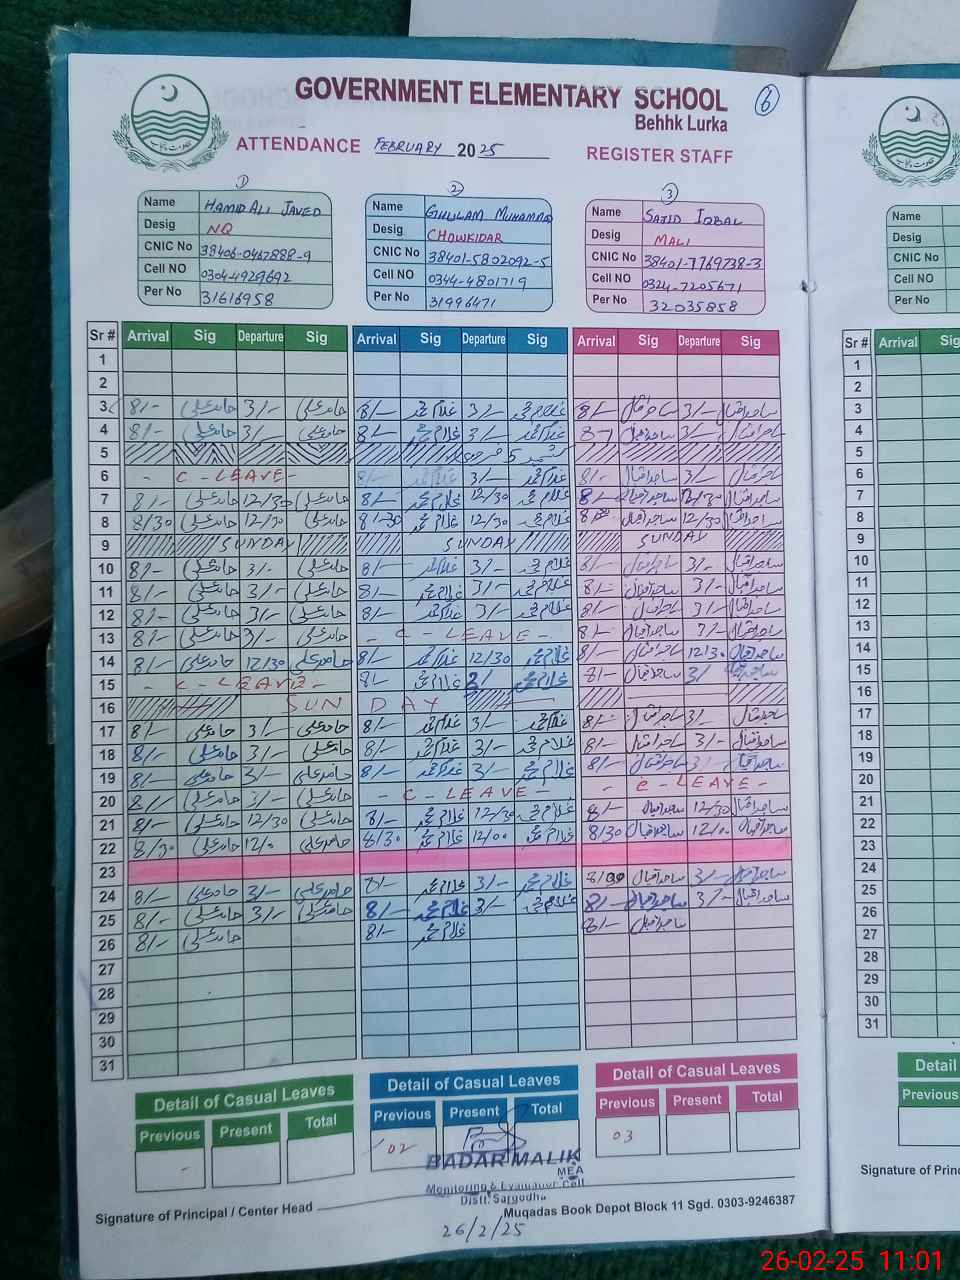 GOVERNMENT ELEMENTARY SCHOOL
6
Behhk Lurka
ATTENDANCE FEBRUARY 2025 REGISTER STAFF
1 2 3
Name HAMID ALI JAVED Name GHULAM MUHAMMAD Name SAJID IQBAL Name
Desig NQ Desig CHOWKIDAR Desig MALI Desig
CNIC No 38406-0467888-9 CNIC No 38401-5802092-5 CNIC No 38401-7769738-3 CNIC No
Cell NO 0304-4929692 Cell NO 0344-4801719 Cell NO 0324-7205671 Cell NO
Per No 31616958 Per No 31996471 Per No 32035858 Per No
Sr # Arrival Sig Departure Sig Arrival Sig Departure Sig Arrival Sig Departure Sig Sr # Arrival Sig
1 1
2 2
3 8/- حامد علی 3/- حامد علی 8/- غلام محمد 3/- غلام محمد 8/- ساجد اقبال 3/- ساجد اقبال 3
4 8/- حامد علی 3/- حامد علی 8/- غلام محمد 3/- غلام محمد 8/- ساجد اقبال 3/- ساجد اقبال 4
5 5 5
6 - C - LEAVE - 8/- غلام محمد 3/- غلام محمد 8/- ساجد اقبال 3/- ساجد اقبال 6
7 8/- حامد علی 12/30 حامد علی 8/- غلام محمد 12/30 غلام محمد 8/- ساجد اقبال 12/30 ساجد اقبال 7
8 8/30 حامد علی 12/30 حامد علی 8/-30 غلام محمد 12/30 غلام محمد 8 ساجد اقبال 12/30 ساجد اقبال 8
9 SUNDAY SUNDAY SUNDAY 9
10 8/- حامد علی 3/- حامد علی 8/- غلام محمد 3/- غلام محمد 8/- ساجد اقبال 3/- ساجد اقبال 10
11 8/- حامد علی 3/- حامد علی 8/- غلام محمد 3/- غلام محمد 8/- ساجد اقبال 3/- ساجد اقبال 11
12 8/- حامد علی 3/- حامد علی 8/- غلام محمد 3/- غلام محمد 8/- ساجد اقبال 3/- ساجد اقبال 12
13 8/- حامد علی 3/- حامد علی - C - LEAVE - 8/- ساجد اقبال 3/- ساجد اقبال 13
14 8/- حامد علی 12/30 حامد علی 8/- غلام محمد 12/30 غلام محمد 8/- ساجد اقبال 12/30 ساجد اقبال 14
15 - C - LEAVE - 8/- غلام محمد 3/ غلام محمد 8/- ساجد اقبال 3/ ساجد اقبال 15
16 SUN DAY 16
17 8/- حامد علی 3/- حامد علی 8/- غلام محمد 3/- غلام محمد 8/- ساجد اقبال 3/- ساجد اقبال 17
18 8/- حامد علی 3/- حامد علی 8/- غلام محمد 3/- غلام محمد 8/- ساجد اقبال 3/- ساجد اقبال 18
19 8/- حامد علی 3/- حامد علی 8/- غلام محمد 3/- غلام محمد 8/- ساجد اقبال 3/- ساجد اقبال 19
20 8/- حامد علی 3/- حامد علی - C - LEAVE - - C - LEAVE - 20
21 8/- حامد علی 12/30 حامد علی 8/- غلام محمد 12/30 غلام محمد 8/- ساجد اقبال 12/30 ساجد اقبال 21
22 8/30 حامد علی 12/0 حامد علی 8/30 غلام محمد 12/00 غلام محمد 8/30 ساجد اقبال 12/0 ساجد اقبال 22
23 23
24 8/- حامد علی 3/- حامد علی 8/- غلام محمد 3/- غلام محمد ساجد اقبال 3/- ساجد اقبال 24
25 8/- حامد علی 3/- حامد علی 8/- غلام محمد 3/- غلام محمد 8/- ساجد اقبال 3/- ساجد اقبال 25
26 8/- حامد علی 8/- غلام محمد 8/- ساجد اقبال 26
27 27
28 28
29 29
30 30
31 31
Detail of Casual Leaves Detail of Casual Leaves Detail of Casual Leaves Detail
Previous Present Total Previous Present Total Previous Present Total Previous
- 02 03
BADAR MALIK
MEA
Monitoring & Evaluation Cell
Distt. Sargodha
Signature of Principal / Center Head Muqadas Book Depot Block 11 Sgd. 0303-9246387 Signature of Princ
26/2/25
26-02-25 11:01